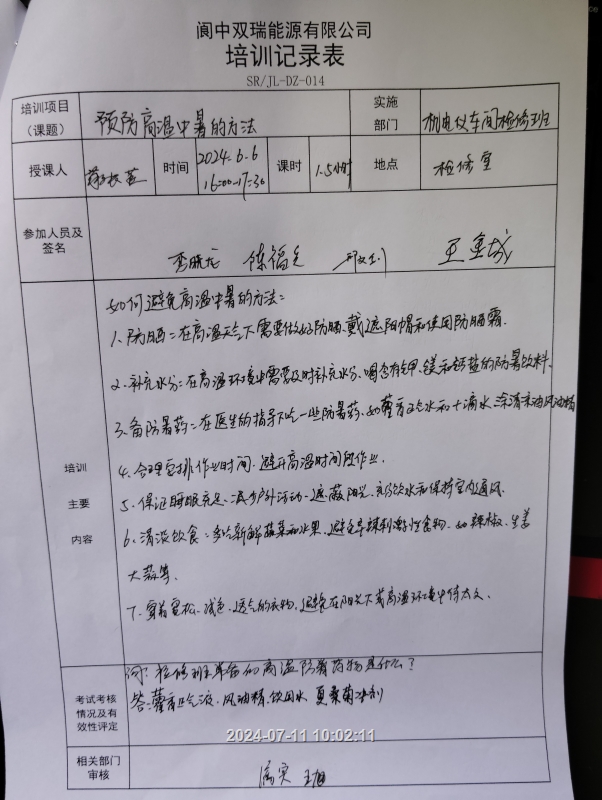 阆中双瑞能源有限公司
培训记录表
SR/JL-DZ-014
培训项目（课题） 预防高温中暑的方法 实施部门 机电仪车间检修班
授课人 时间 2024.6.6 16:00-17:30 课时 1.5小时 地点 检修室
参加人员及签名 李晓龙
如何避免高温中暑的方法:
1、防晒:在高温天气下需要做好防晒、戴遮阳帽和使用防晒霜.
2、补充水分:在高温环境中需要及时补充水分、喝含有钾、镁和钙盐的防暑饮料.
3、备防暑药:在医生的指导下吃一些防暑药、如藿香正气水和十滴水、涂清凉油风油精
4、合理安排作业时间、避开高温时间段作业.
5、保证睡眠充足、减少户外活动、遮蔽阳光、充分饮水和保持室内通风.
6、清淡饮食:多吃新鲜蔬菜和水果、避免辛辣刺激性食物、如辣椒、生姜
大蒜等.
7、穿着宽松、浅色、透气的衣物、避免在阳光下或高温环境中待太久.
培训主要内容
问:检修班准备的高温防暑药物是什么?
答:藿香正气液、风油精、饮用水 夏桑菊冲剂
考试考核情况及有效性评定
2024-07-11 10:02:11
相关部门审核